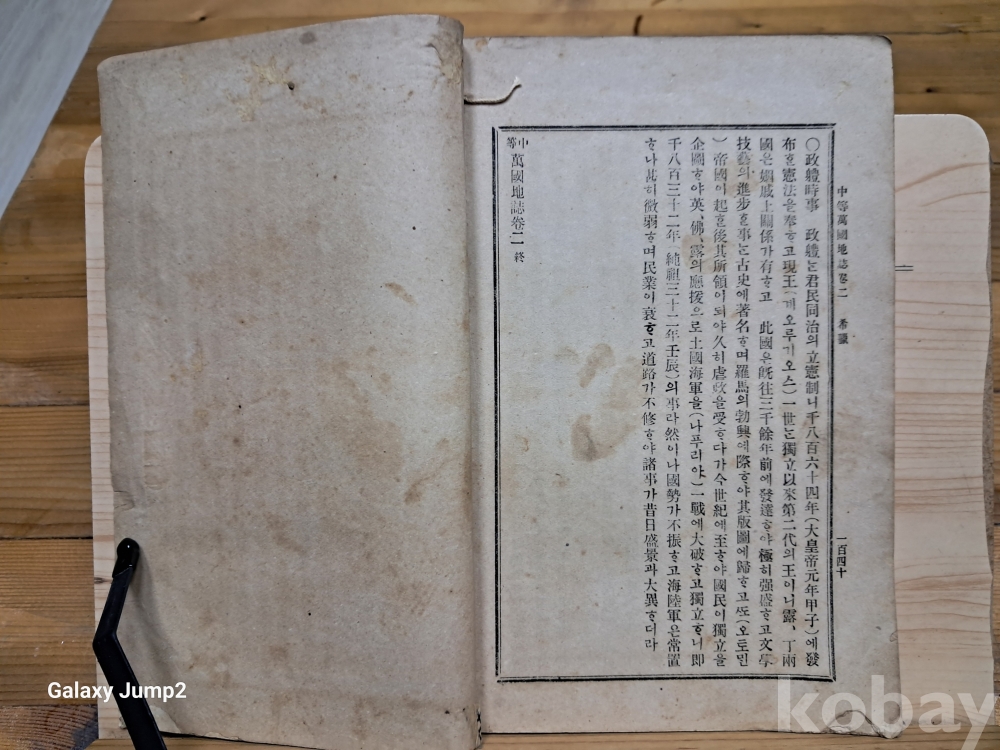 中等萬國地誌卷二 希臘 一百四十
〇政軆時事 政軆는君民同治의立憲制니千八百六十四年(大皇帝元年甲子)에發
布ᄒᆞᆫ憲法을奉ᄒᆞ고現王(쪠오루기오스)一世는獨立以來第二代의王이니露、丁兩
國은姻戚上關係가有ᄒᆞ고 此國은旣往三千餘年前에發達ᄒᆞ야極히强盛ᄒᆞ고文學
技藝의進步ᄒᆞᆫ事는古史에著名ᄒᆞ며羅馬의勃興에際ᄒᆞ야其版圖에歸ᄒᆞ고ᄯᅩ(오토민
)帝國이起ᄒᆞᆫ後其所領이되야久히虐政을受ᄒᆞ다가今世紀에至ᄒᆞ야國民이獨立을
企圖ᄒᆞ야英、佛、露의應援으로土國海軍을(나푸리야)一戰에大破ᄒᆞ고獨立ᄒᆞ니卽
千八百三十二年(純祖三十二年壬辰)의事라然이나國勢가不振ᄒᆞ고海陸軍은常置
ᄒᆞ나甚히微弱ᄒᆞ며民業이衰ᄒᆞ고道路가不修ᄒᆞ야諸事가昔日盛景과大異ᄒᆞ더라
中等萬國地誌卷二 終
Galaxy Jump2
kobay